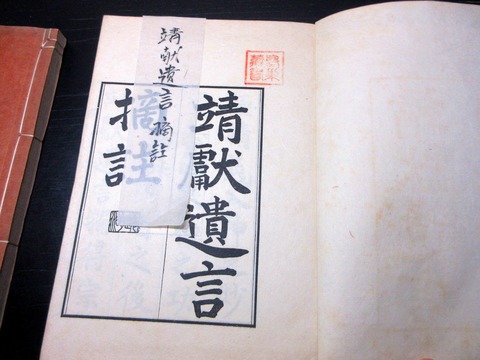 靖獻遺言
摘註
靖献遺言 摘註